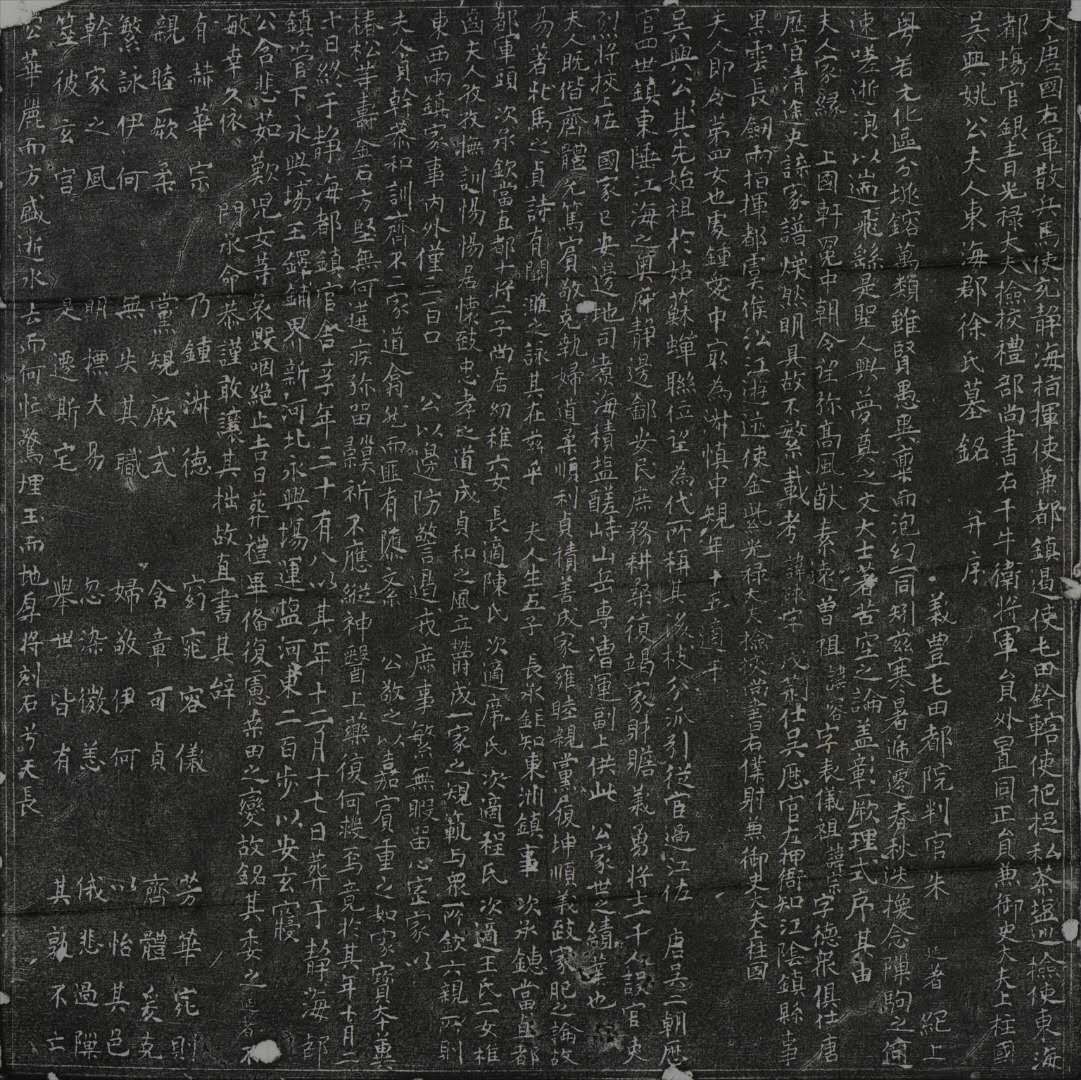 大唐國右軍散兵馬使充靜海指揮使兼都鎮遏使屯田鈐轄使把捉私茶鹽巡檢使東海
都場官銀青光祿大夫檢校禮部尚書右千牛衛將軍員外置同正員兼御史大夫上柱國
吳興姚公夫人東海郡徐氏墓銘 并序
義豐屯田都院判官朱 延著 紀上
粵若元化區分坯鎔萬類雖賢愚異稟而泡幻一同矧茲寒暑遞遷春秋迭換念隟駒之
速嗟逝浪以湍飛繇是聖人興夢奠之文大士著苦空之論蓋彰厥理式序其由
夫人家緣 上國軒冕中朝令望弥高風猷素遠曾祖諱 字表儀祖諱宗字德俱仕唐
歷官清途史諜家譜爛然明具故不繁載考 諱 字 仕吳歷官左押衙知江陰鎮縣事
黑雲長劒兩指揮都虞候沿江遊奕使金紫光祿大夫檢校尚書右僕射兼御史大夫柱國
夫人即令第四女也處鍾愛中最為淋慎中規年 適于
吳興公其先始祖於姑蘇蟬聯位望為代所稱其後枝分派引從官過江佐 唐吳二朝歷
官四世鎮東陲江海之奧府靜邊鄙安民庶務耕桑復竭家財贍義勇將士一千人設官吏
烈將校上佐 國家已安邊地司煮海積鹽鹺峙山岳專漕運副上供此 公家世之績業也
夫人既偕齊體尤篤賓敬克執婦道柔順利貞積善成家雍睦親黨履坤順義鼓家肥之論故
易著牝馬之貞詩有關雎之詠其在茲乎 夫人生五子 長承鉦知東洲鎮事 次承鏓當直都
都軍頭 次承欽當直都十將二子尚居幼稚六女 長適陳氏 次適席氏 次適程氏 次適王氏二女稚
齒夫人孜孜撫訓惕惕居懷鼓忠孝之道成貞和之風立讚成一家之規範与眾一所欽六親所則
東西兩鎮家事內外僅二百口 公以邊防警言遏戎庶事繁無暇留心室家以
夫人貞幹恭和訓齊不二家道翕然而匪有隳紊 公敬之以嘉賓重之如家寶本冀
椿松等壽金石方堅無何遘疾弥留禱祈不應縱神醫上藥復何救焉竟於其年十月二
十日終于靜海都鎮官舍享年三十有八以其年十二月十七日葬于靜海都
鎮管下永興場王鐸鋪界新河北永興場運鹽河東二百步以安玄寢
公含悲茹歎兒女等哀毀咽絕上吉日葬禮畢俻復慮桑田之變故銘其委之 延著 不
敏幸久依 門永命恭謹敢讓其拙故直書其辞
有赫華宗 乃鍾淋德 窈窕容儀 芳華宛則
親睦厥柔 黨規厥式 含章可貞 齊體爰克
繁詠伊何 無失其職 婦敬伊何 以怡其邑
幹家之風 明撫大易 忽染微恙 俄悲過隟
筮彼玄宮 是遷斯宅 舉世皆有 其孰不亡
公華麗而方盛逝水去而何忙驚埋玉而地厚將刻石兮天長